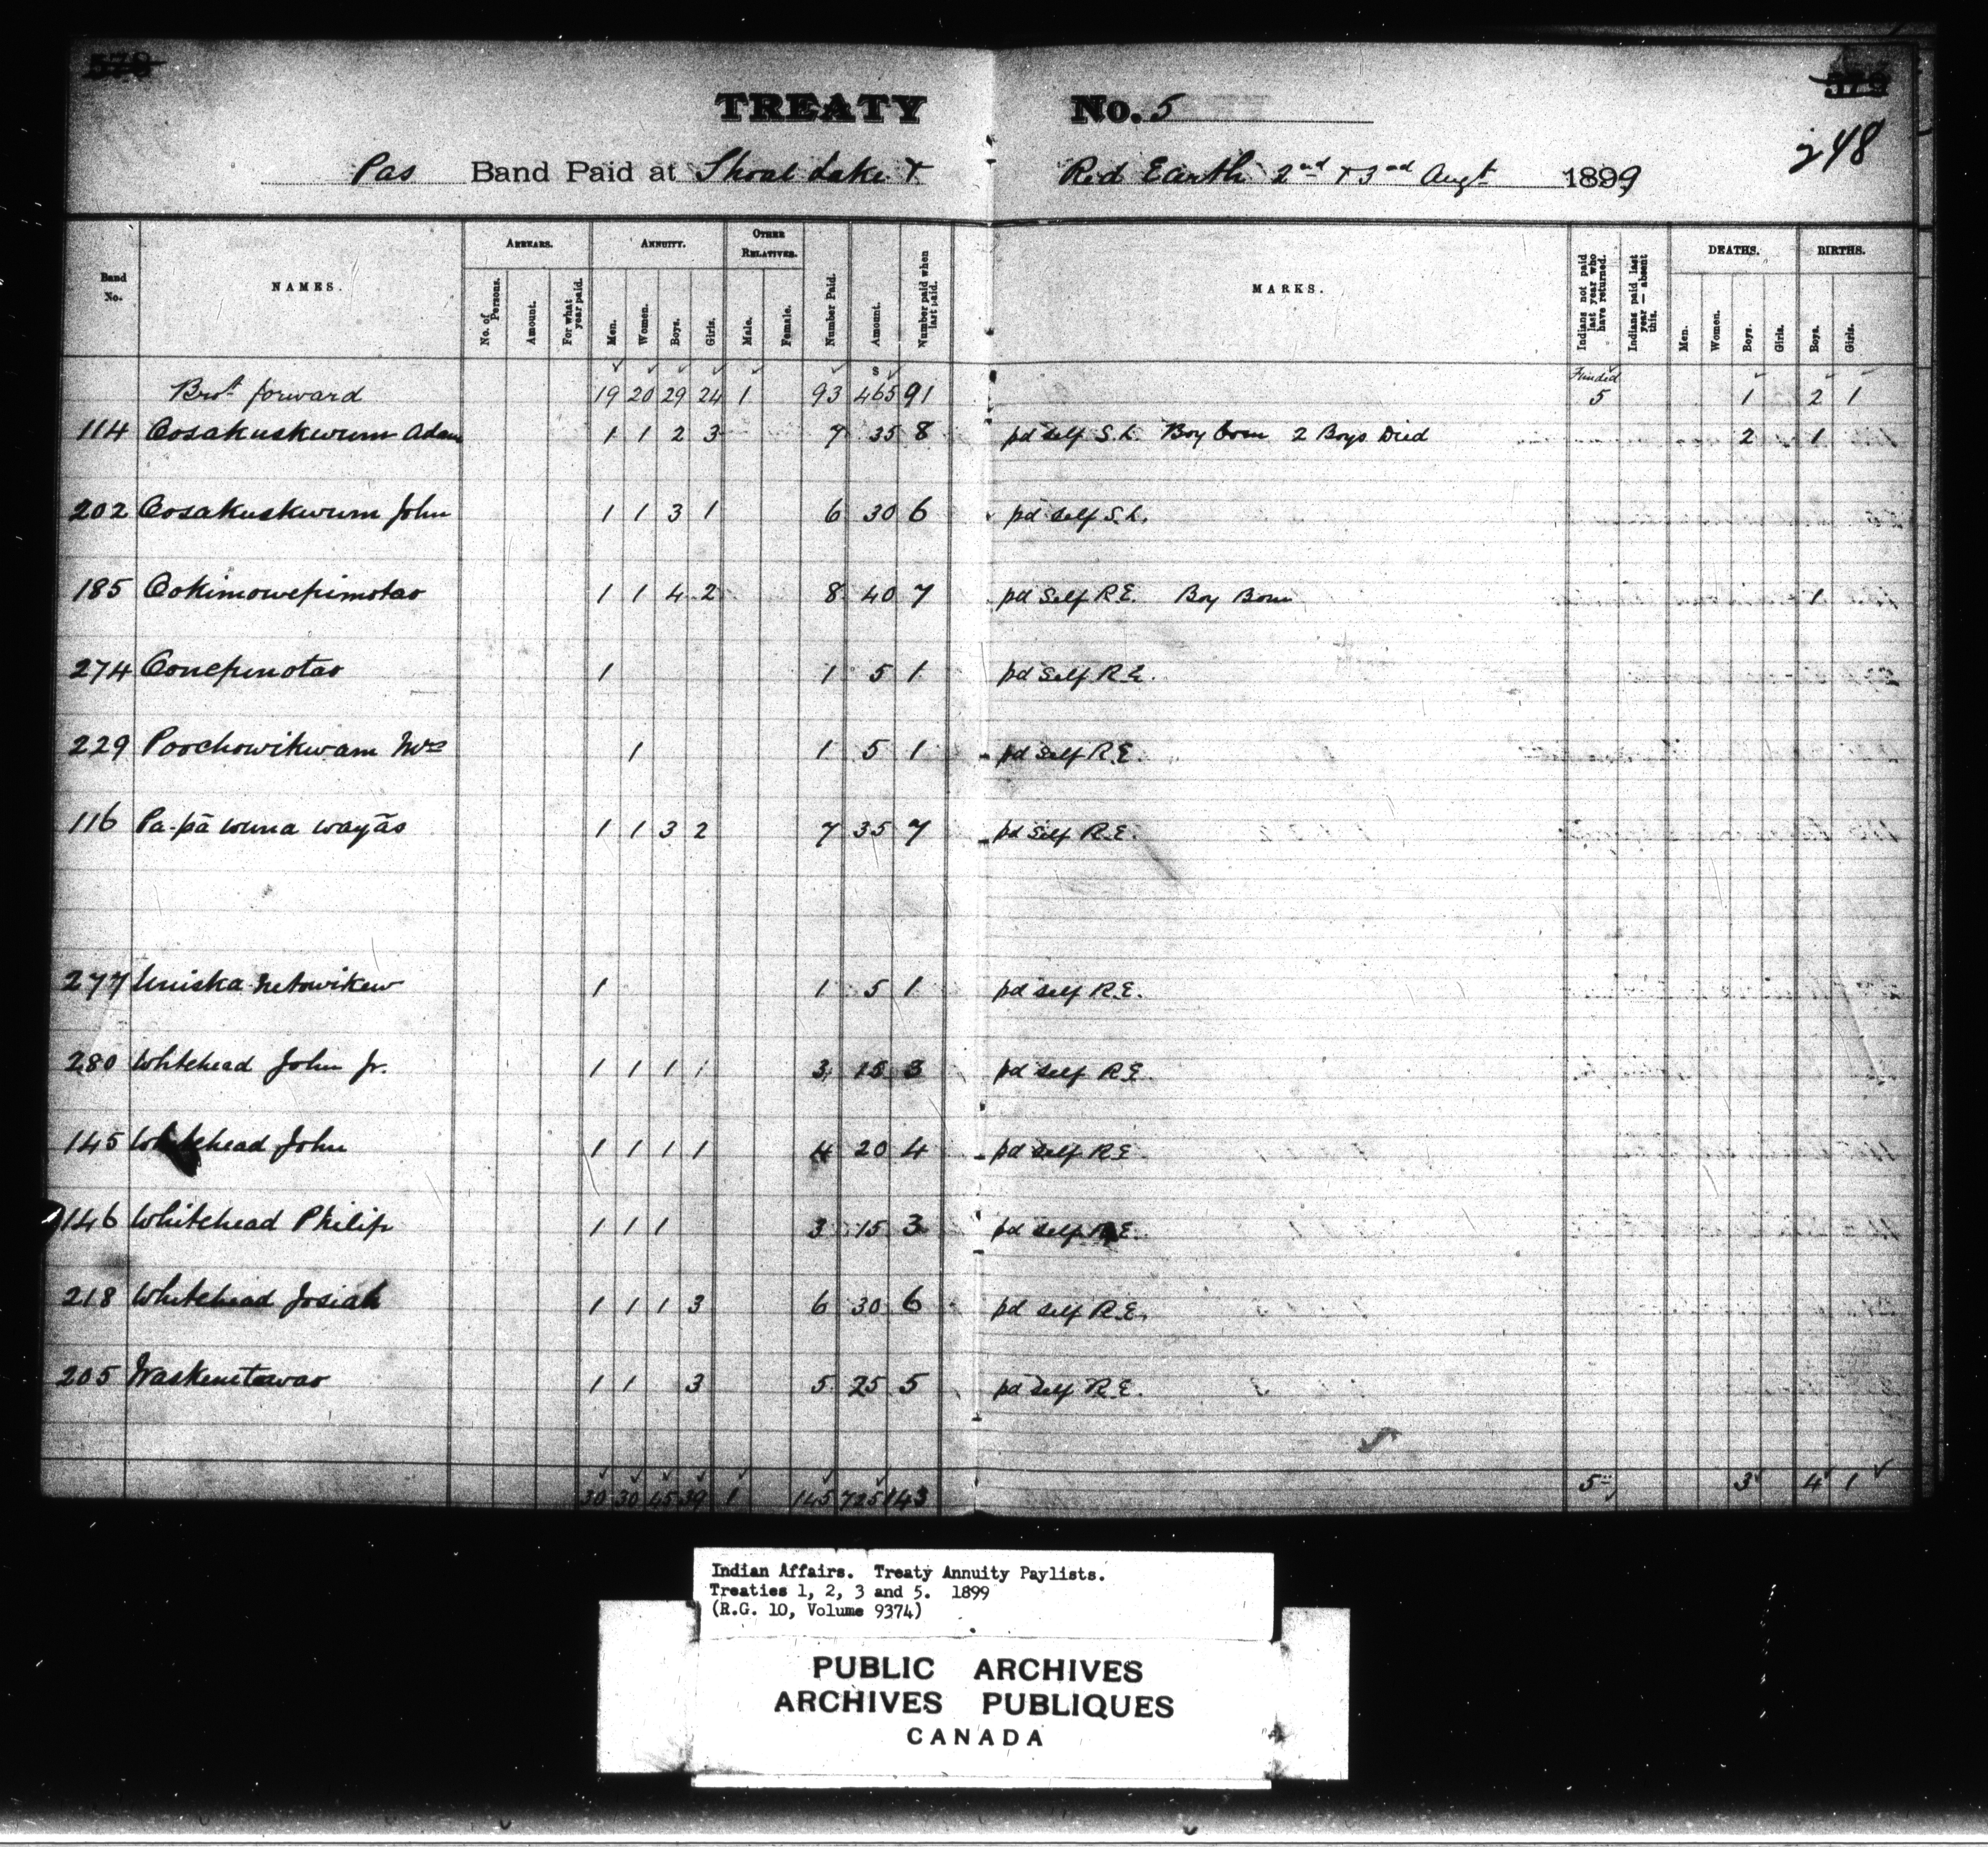 578 579
TREATY No. 5
248
Pas Band Paid at Shoal Lake & Red Earth 2nd & 3rd Augt 1899
Band No. NAMES. ARREARS. ANNUITY. OTHER RELATIVES. Number Paid. Amount. Number paid when last paid. MARKS. Indians not paid last year who have returned. Indians paid last year — absent this. DEATHS. BIRTHS.
No. of Persons. Amount. For what year paid. Men. Women. Boys. Girls. Male. Female. Men. Women. Boys. Girls. Boys. Girls.
Brot forward 19 20 29 24 1 93 $465 91 Funded 5 1 2 1
114 Oosakuskwum Adam 1 1 2 3 7 35 8 pd self S.L. Boy born 2 Boys Died 2 1
202 Oosakuskwum John 1 1 3 1 6 30 6 pd self S.L.
185 Ookimowepimotao 1 1 4 2 8 40 7 pd self R.E. Boy Born 1
274 Oonepimotao 1 1 5 1 pd self R.E.
229 Poochowikwam Mrs 1 1 5 1 pd self R.E.
116 Pa-pā wuna wayās 1 1 3 2 7 35 7 pd self R.E.
277 Uniska netowikew 1 1 5 1 pd self R.E.
280 Whitehead John Jr. 1 1 1 1 3 15 3 pd self R.E.
145 Whitehead John 1 1 1 1 4 20 4 pd self R.E.
146 Whitehead Philip 1 1 1 3 15 3 pd self R.E.
218 Whitehead Josiah 1 1 1 3 6 30 6 pd self R.E.
205 Waskenetawao 1 1 3 5 25 5 pd self R.E.
30 30 45 39 1 145 725 143 5 3 4 1
Indian Affairs. Treaty Annuity Paylists.
Treaties 1, 2, 3 and 5. 1899
(R.G. 10, Volume 9374)
PUBLIC ARCHIVES
ARCHIVES PUBLIQUES
CANADA